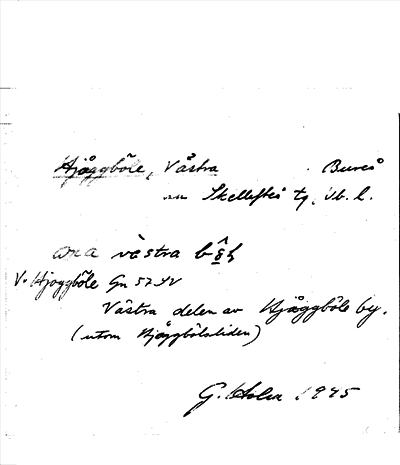 Hjåggböle, Västra Bureå
Skellefteå tg, Vb. l.
västra
V. Hjoggböle Gn 57 SV
Västra delen av Hjåggböle by.
(utom Hjåggbölsliden)
G. Holm 1945